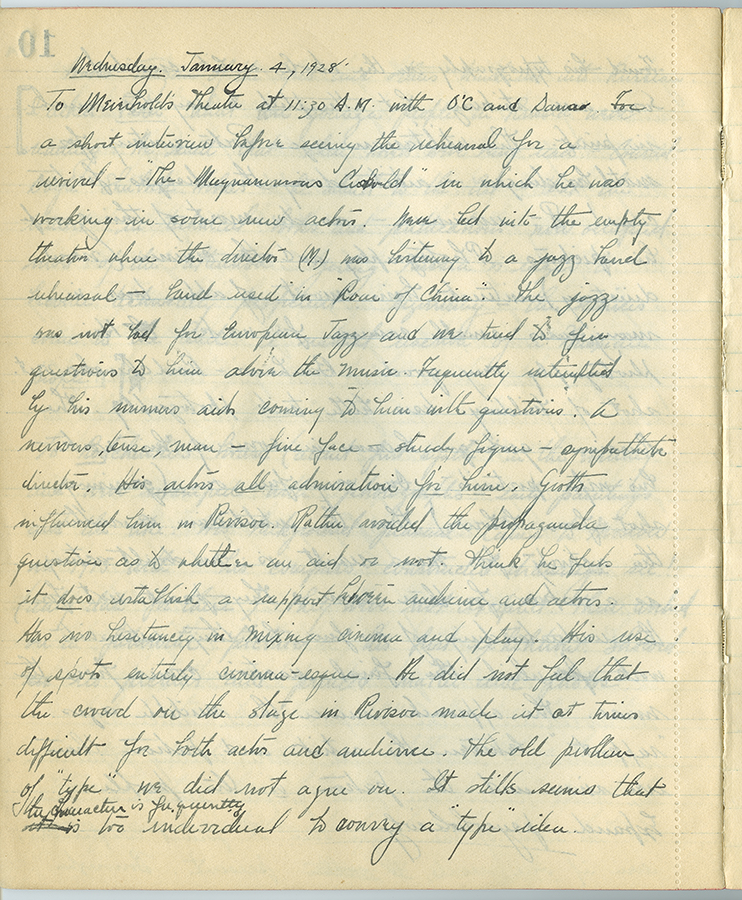 10
Wednesday. January. 4, 1928.
To Meirhold's Theatre at 11:30 A.M. with O'C and Danas. For
a short interview before seeing the rehearsal for a
revival – "The Magnanimous Cuckold" in which he was
working in some new actors. Were led into the empty
theatre where the director (M.) was listening to a jazz band
rehearsal – band used in "Roar of China". The jazz
was not bad for European Jazz and we tried to fire
questions to him above the music. Frequently interrupted
by his numers aids coming to him with questions. A
nervous, tense, man – fine face – steady figure – sympathetic
director. His actors all admiration for him. Grotts
influenced him in Revisor. Rather avoided the propaganda
question as to whether an aid or not. Think he feels
it does establish a rapport between audience and actors.
Has no hesitancy in mixing cinema and play. His use
of spots entirely cinema-esque. He did not feel that
the crowd on the stage in Revisor made it at times
difficult for both actor and audience. The old problem
of "type" we did not agree on. It still seems that
the character is frequently
is too individual to convey a "type" idea.